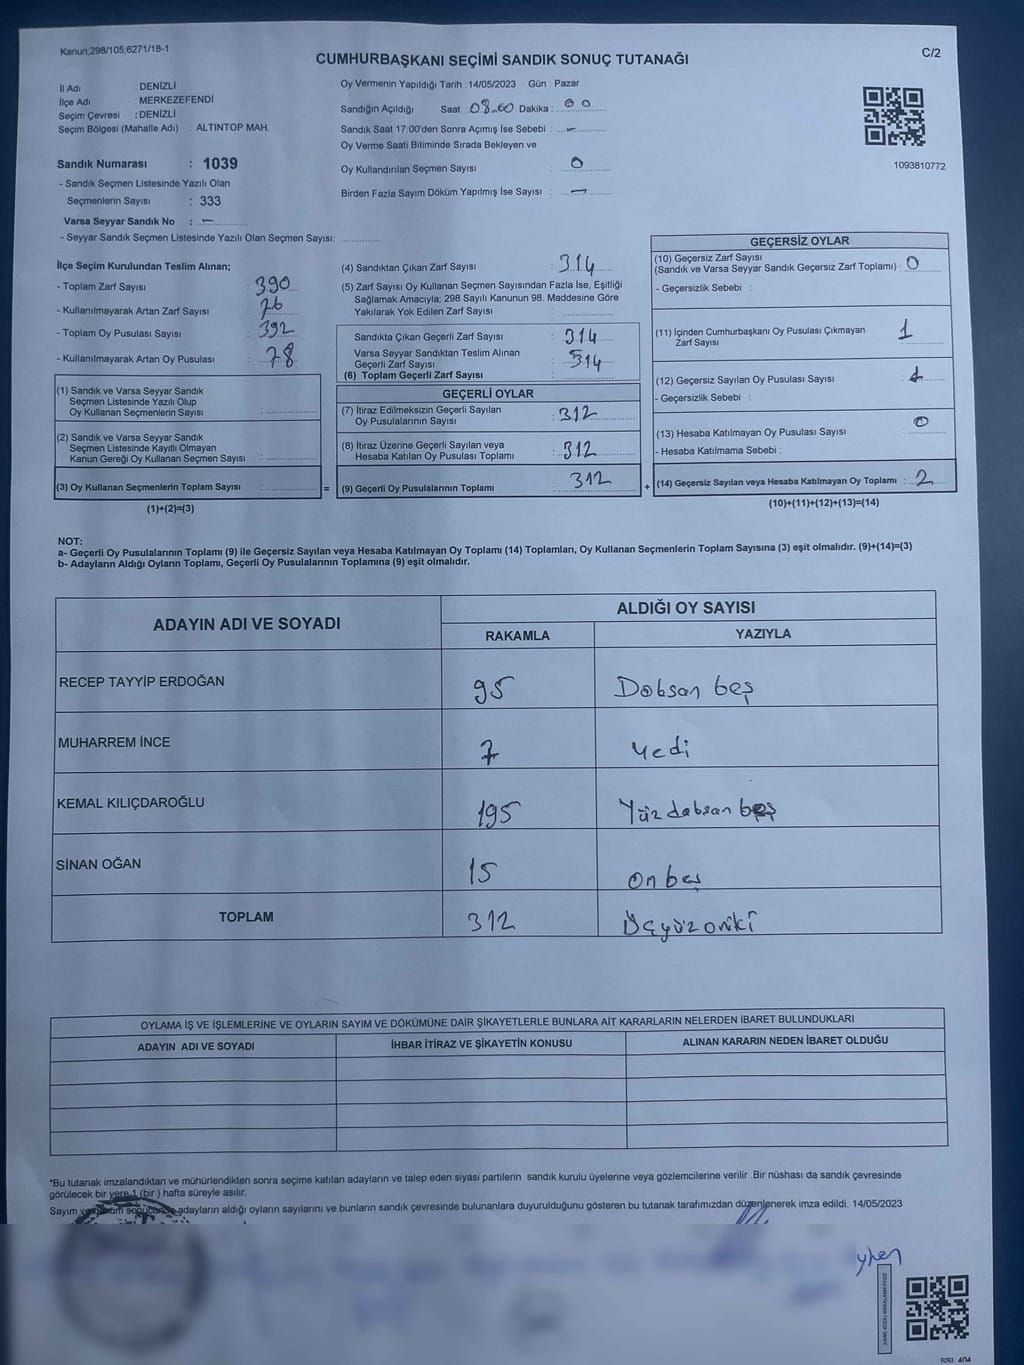 Kanun;298/105;6271/18-1
CUMHURBAŞKANI SEÇİMİ SANDIK SONUÇ TUTANAĞI
C/2
İl Adı : DENİZLİ
İlçe Adı : MERKEZEFENDİ
Seçim Çevresi : DENİZLİ
Seçim Bölgesi (Mahalle Adı) : ALTINTOP MAH.
Sandık Numarası : 1039
- Sandık Seçmen Listesinde Yazılı Olan
Seçmenlerin Sayısı : 333
Varsa Seyyar Sandık No : -
- Seyyar Sandık Seçmen Listesinde Yazılı Olan Seçmen Sayısı:
Oy Vermenin Yapıldığı Tarih : 14/05/2023 Gün : Pazar
Sandığın Açıldığı Saat : 08.00 Dakika : 00
Sandık Saat 17:00'den Sonra Açılmış İse Sebebi : -
Oy Verme Saati Bitiminde Sırada Bekleyen ve
Oy Kullandırılan Seçmen Sayısı : 0
Birden Fazla Sayım Döküm Yapılmış İse Sayısı : -
1093810772
İlçe Seçim Kurulundan Teslim Alınan;
- Toplam Zarf Sayısı : 390
- Kullanılmayarak Artan Zarf Sayısı : 76
- Toplam Oy Pusulası Sayısı : 392
- Kullanılmayarak Artan Oy Pusulası : 78
(1) Sandık ve Varsa Seyyar Sandık
Seçmen Listesinde Yazılı Olup
Oy Kullanan Seçmenlerin Sayısı :
(2) Sandık ve Varsa Seyyar Sandık
Seçmen Listesinde Kayıtlı Olmayan
Kanun Gereği Oy Kullanan Seçmen Sayısı :
(3) Oy Kullanan Seçmenlerin Toplam Sayısı :
(1)+(2)=(3)
(4) Sandıktan Çıkan Zarf Sayısı : 314
(5) Zarf Sayısı Oy Kullanan Seçmen Sayısından Fazla İse, Eşitliği
Sağlamak Amacıyla; 298 Sayılı Kanunun 98. Maddesine Göre
Yakılarak Yok Edilen Zarf Sayısı :
Sandıkta Çıkan Geçerli Zarf Sayısı : 314
Varsa Seyyar Sandıktan Teslim Alınan
Geçerli Zarf Sayısı : 314
(6) Toplam Geçerli Zarf Sayısı :
GEÇERLİ OYLAR
(7) İtiraz Edilmeksizin Geçerli Sayılan
Oy Pusulalarının Sayısı : 312
(8) İtiraz Üzerine Geçerli Sayılan veya
Hesaba Katılan Oy Pusulası Toplamı : 312
= (9) Geçerli Oy Pusulalarının Toplamı : 312
GEÇERSİZ OYLAR
(10) Geçersiz Zarf Sayısı
(Sandık ve Varsa Seyyar Sandık Geçersiz Zarf Toplamı) : 0
- Geçersizlik Sebebi :
(11) İçinden Cumhurbaşkanı Oy Pusulası Çıkmayan
Zarf Sayısı : 1
(12) Geçersiz Sayılan Oy Pusulası Sayısı : 1
- Geçersizlik Sebebi :
(13) Hesaba Katılmayan Oy Pusulası Sayısı : 0
- Hesaba Katılmama Sebebi :
+ (14) Geçersiz Sayılan veya Hesaba Katılmayan Oy Toplamı : 2
(10)+(11)+(12)+(13)=(14)
NOT:
a- Geçerli Oy Pusulalarının Toplamı (9) ile Geçersiz Sayılan veya Hesaba Katılmayan Oy Toplamı (14) Toplamları, Oy Kullanan Seçmenlerin Toplam Sayısına (3) eşit olmalıdır. (9)+(14)=(3)
b- Adayların Aldığı Oyların Toplamı, Geçerli Oy Pusulalarının Toplamına (9) eşit olmalıdır.
ADAYIN ADI VE SOYADI
ALDIĞI OY SAYISI
RAKAMLA YAZIYLA
RECEP TAYYİP ERDOĞAN 95 Dobsan beş
MUHARREM İNCE 7 yedi
KEMAL KILIÇDAROĞLU 195 Yüz dabsan beş
SİNAN OĞAN 15 on beş
TOPLAM 312 Üçyüz oniki
OYLAMA İŞ VE İŞLEMLERİNE VE OYLARIN SAYIM VE DÖKÜMÜNE DAİR ŞİKAYETLERLE BUNLARA AİT KARARLARIN NELERDEN İBARET BULUNDUKLARI
ADAYIN ADI VE SOYADI İHBAR İTİRAZ VE ŞİKAYETİN KONUSU ALINAN KARARIN NEDEN İBARET OLDUĞU
*Bu tutanak imzalandıktan ve mühürlendikten sonra seçime katılan adayların ve talep eden siyasi partilerin sandık kurulu üyelerine veya gözlemcilerine verilir. Bir nüshası da sandık çevresinde
görülecek bir yere 1 (bir) hafta süreyle asılır.
Sayım ve döküm sonucunda adayların aldığı oyların sayılarını ve bunların sandık çevresinde bulunanlara duyurulduğunu gösteren bu tutanak tarafımızdan düzenlenerek imza edildi. 14/05/2023